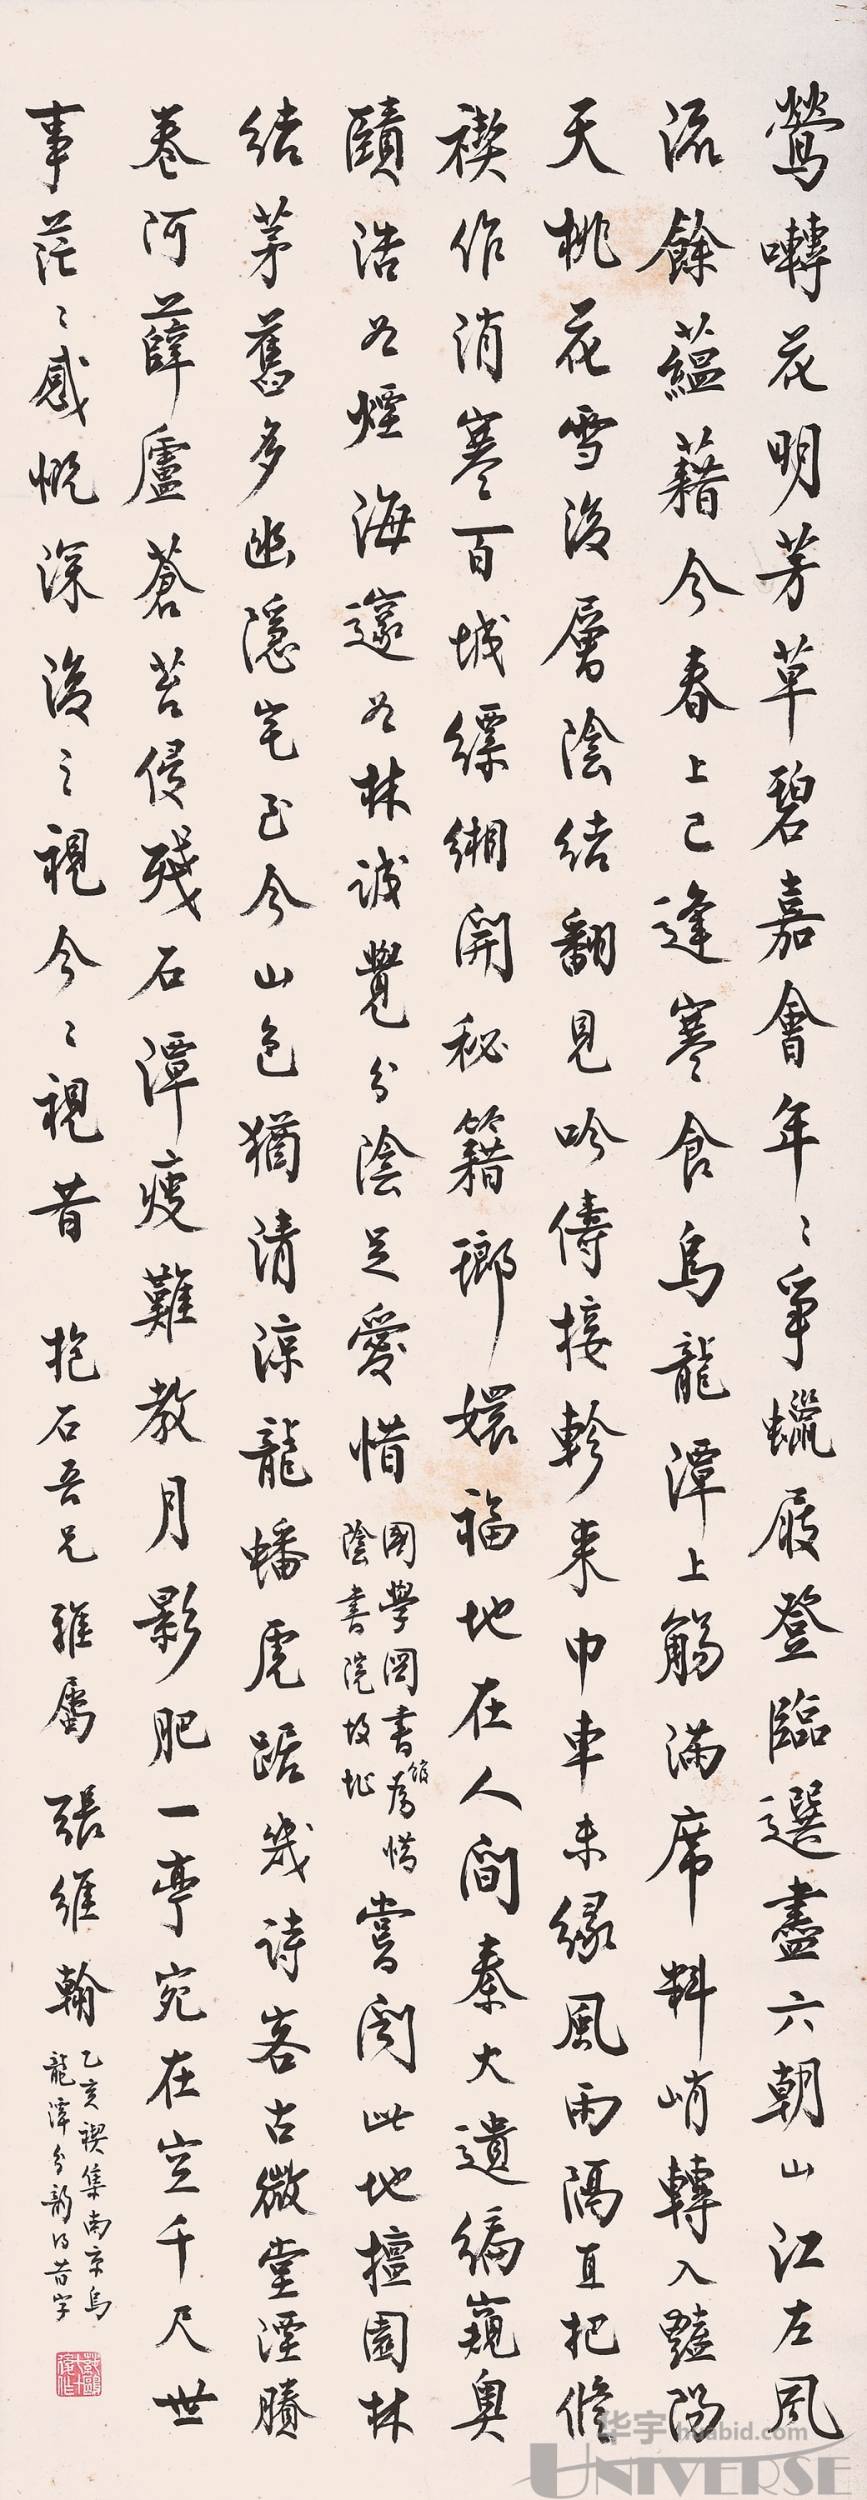 鶯囀花明芳草碧嘉會年〻爭蠟屐登臨選盡六朝山江左風
流餘蘊藉今春上巳逢寒食烏龍潭上觴滿席料峭轉入豔陽
天桃花雪後層陰結翻見吟儔接軫來巾車未緣風雨隔直把修
禊作消寒百城縹緗開秘籍瑯嬛福地在人間秦火遺編窺奧
賾浩如煙海邃如林誠覺分陰足愛惜
國學圖書館為惜
陰書院故址
嘗聞此地擅園林
結茅舊多幽隱宅至今山色猶清涼龍蟠虎踞幾詩客古微堂湮賸
卷阿薛廬蒼苔侵殘石潭瘦難教月影肥一亭宛在空千尺世
事茫〻感慨深後之視今〻視昔 抱石吾兄 雅屬 張維翰
乙亥禊集南京烏
龍潭分韻得昔字
华宇 huabid.com
UNIVERSE